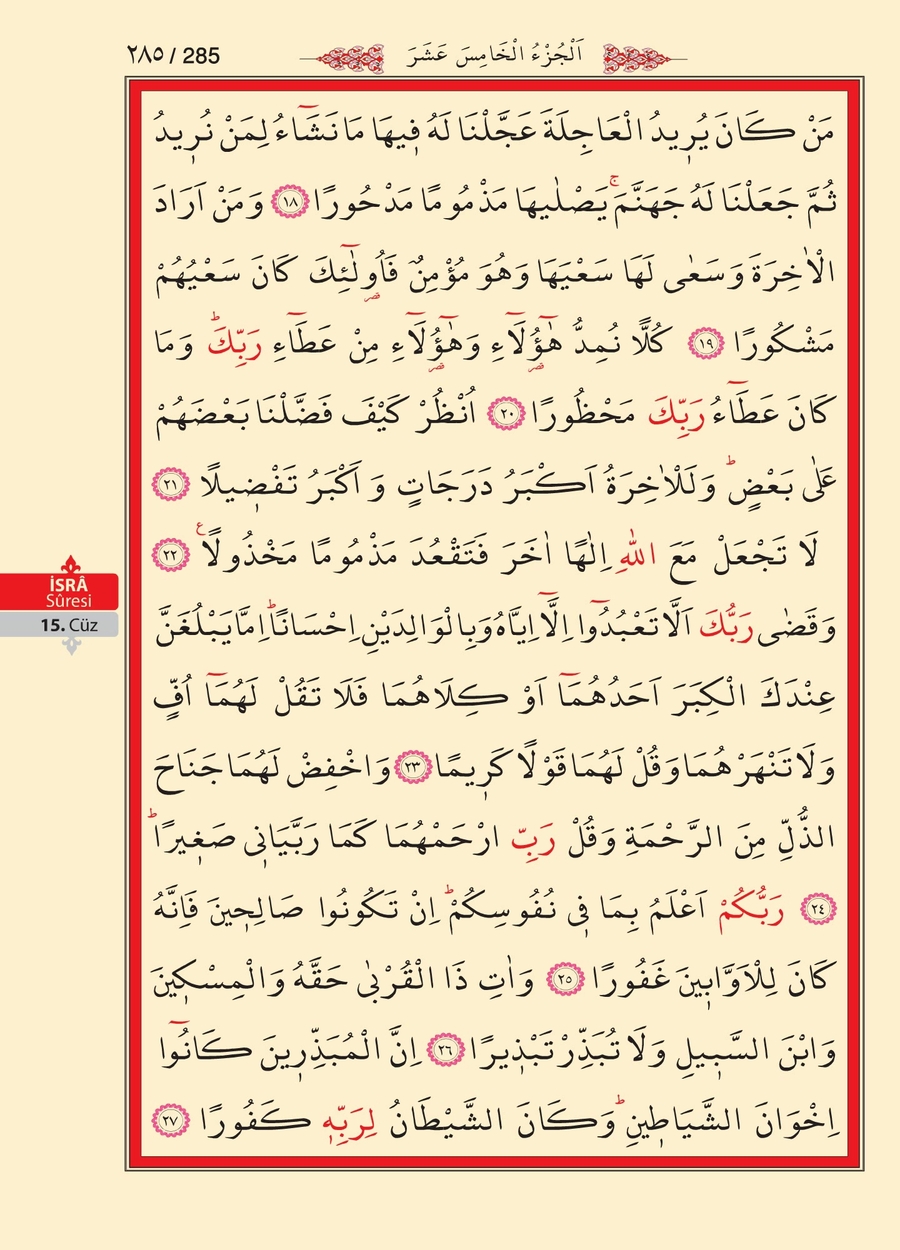 ٢٨٥ / 285
اَلْجُزْءُ الْخَامِسَ عَشَرَ
مَنْ كَانَ يُر۪يدُ الْعَاجِلَةَ عَجَّلْنَا لَهُ ف۪يهَا مَا نَشَٓاءُ لِمَنْ نُر۪يدُ
ثُمَّ جَعَلْنَا لَهُ جَهَنَّمَۚ يَصْلٰيهَا مَذْمُومًا مَدْحُورًا ﴿١٨﴾ وَمَنْ اَرَادَ
الْاٰخِرَةَ وَسَعٰى لَهَا سَعْيَهَا وَهُوَ مُؤْمِنٌ فَاُو۬لٰٓئِكَ كَانَ سَعْيُهُمْ
مَشْكُورًا ﴿١٩﴾ كُلًّا نُمِدُّ هٰٓؤُ۬لَٓاءِ وَهٰٓؤُ۬لَٓاءِ مِنْ عَطَٓاءِ رَبِّكَۜ وَمَا
كَانَ عَطَٓاءُ رَبِّكَ مَحْظُورًا ﴿٢٠﴾ اُنْظُرْ كَيْفَ فَضَّلْنَا بَعْضَهُمْ
عَلٰى بَعْضٍۜ وَلَلْاٰخِرَةُ اَكْبَرُ دَرَجَاتٍ وَ اَكْبَرُ تَفْض۪يلًا ﴿٢١﴾
لَا تَجْعَلْ مَعَ اللّٰهِ اِلٰهًا اٰخَرَ فَتَقْعُدَ مَذْمُومًا مَخْذُولًا۟ ﴿٢٢﴾
وَقَضٰى رَبُّكَ اَلَّا تَعْبُدُٓوا اِلَّٓا اِيَّاهُ وَبِالْوَالِدَيْنِ اِحْسَانًاۜ اِمَّا يَبْلُغَنَّ
عِنْدَكَ الْكِبَرَ اَحَدُهُمَٓا اَوْ كِلَاهُمَا فَلَا تَقُلْ لَهُمَٓا اُفٍّ
وَلَا تَنْهَرْهُمَا وَقُلْ لَهُمَا قَوْلًا كَر۪يمًا ﴿٢٣﴾ وَاخْفِضْ لَهُمَا جَنَاحَ
الذُّلِّ مِنَ الرَّحْمَةِ وَقُلْ رَبِّ ارْحَمْهُمَا كَمَا رَبَّيَان۪ى صَغ۪يرًاۜ
﴿٢٤﴾ رَبُّكُمْ اَعْلَمُ بِمَا ف۪ى نُفُوسِكُمْۜ اِنْ تَكُونُوا صَالِح۪ينَ فَاِنَّهُ
كَانَ لِلْاَوَّاب۪ينَ غَفُورًا ﴿٢٥﴾ وَاٰتِ ذَا الْقُرْبٰى حَقَّهُ وَالْمِسْك۪ينَ
وَابْنَ السَّب۪يلِ وَلَا تُبَذِّرْ تَبْذ۪يرًا ﴿٢٦﴾ اِنَّ الْمُبَذِّر۪ينَ كَانُٓوا
اِخْوَانَ الشَّيَاط۪ينِۜ وَكَانَ الشَّيْطَانُ لِرَبِّه۪ كَفُورًا ﴿٢٧﴾
İSRÂ
Sûresi
15. Cüz